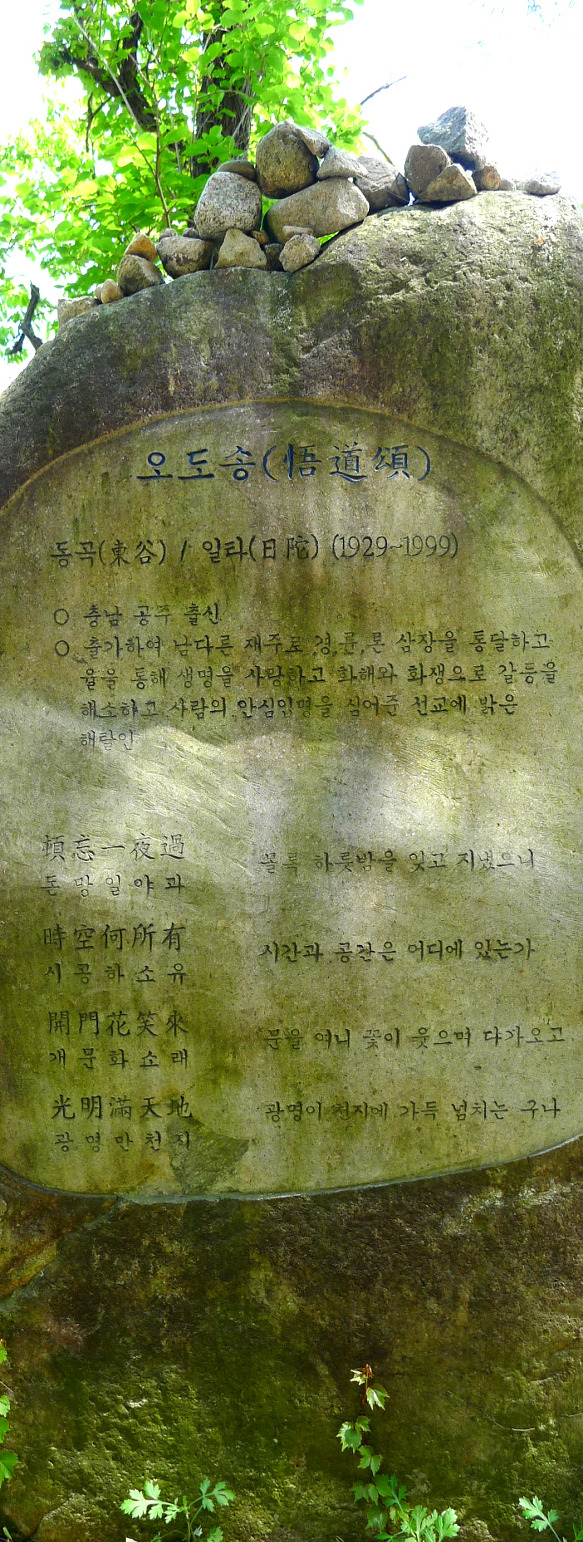 오도송(悟道頌)
동곡(東谷) / 일타(日陀) (1929~1999)
○ 충남 공주 출신
○ 출가하여 남다른 재주로 경,륜,론 삼장을 통달하고
율을 통해 생명을 사랑하고 화해와 화쟁으로 갈등을
해소하고 사람의 안심입명을 심어준 선교에 밝은
해탈인
頓忘一夜過
돈 망 일 야 과
몰록 하룻밤을 잊고 지냈으니
時空何所有
시 공 하 소 유
시간과 공간은 어디에 있는가
開門花笑來
개 문 화 쇼 래
문을 여니 꽃이 웃으며 다가오고
光明滿天地
광 명 만 천 지
광명이 천지에 가득 넘치는 구나